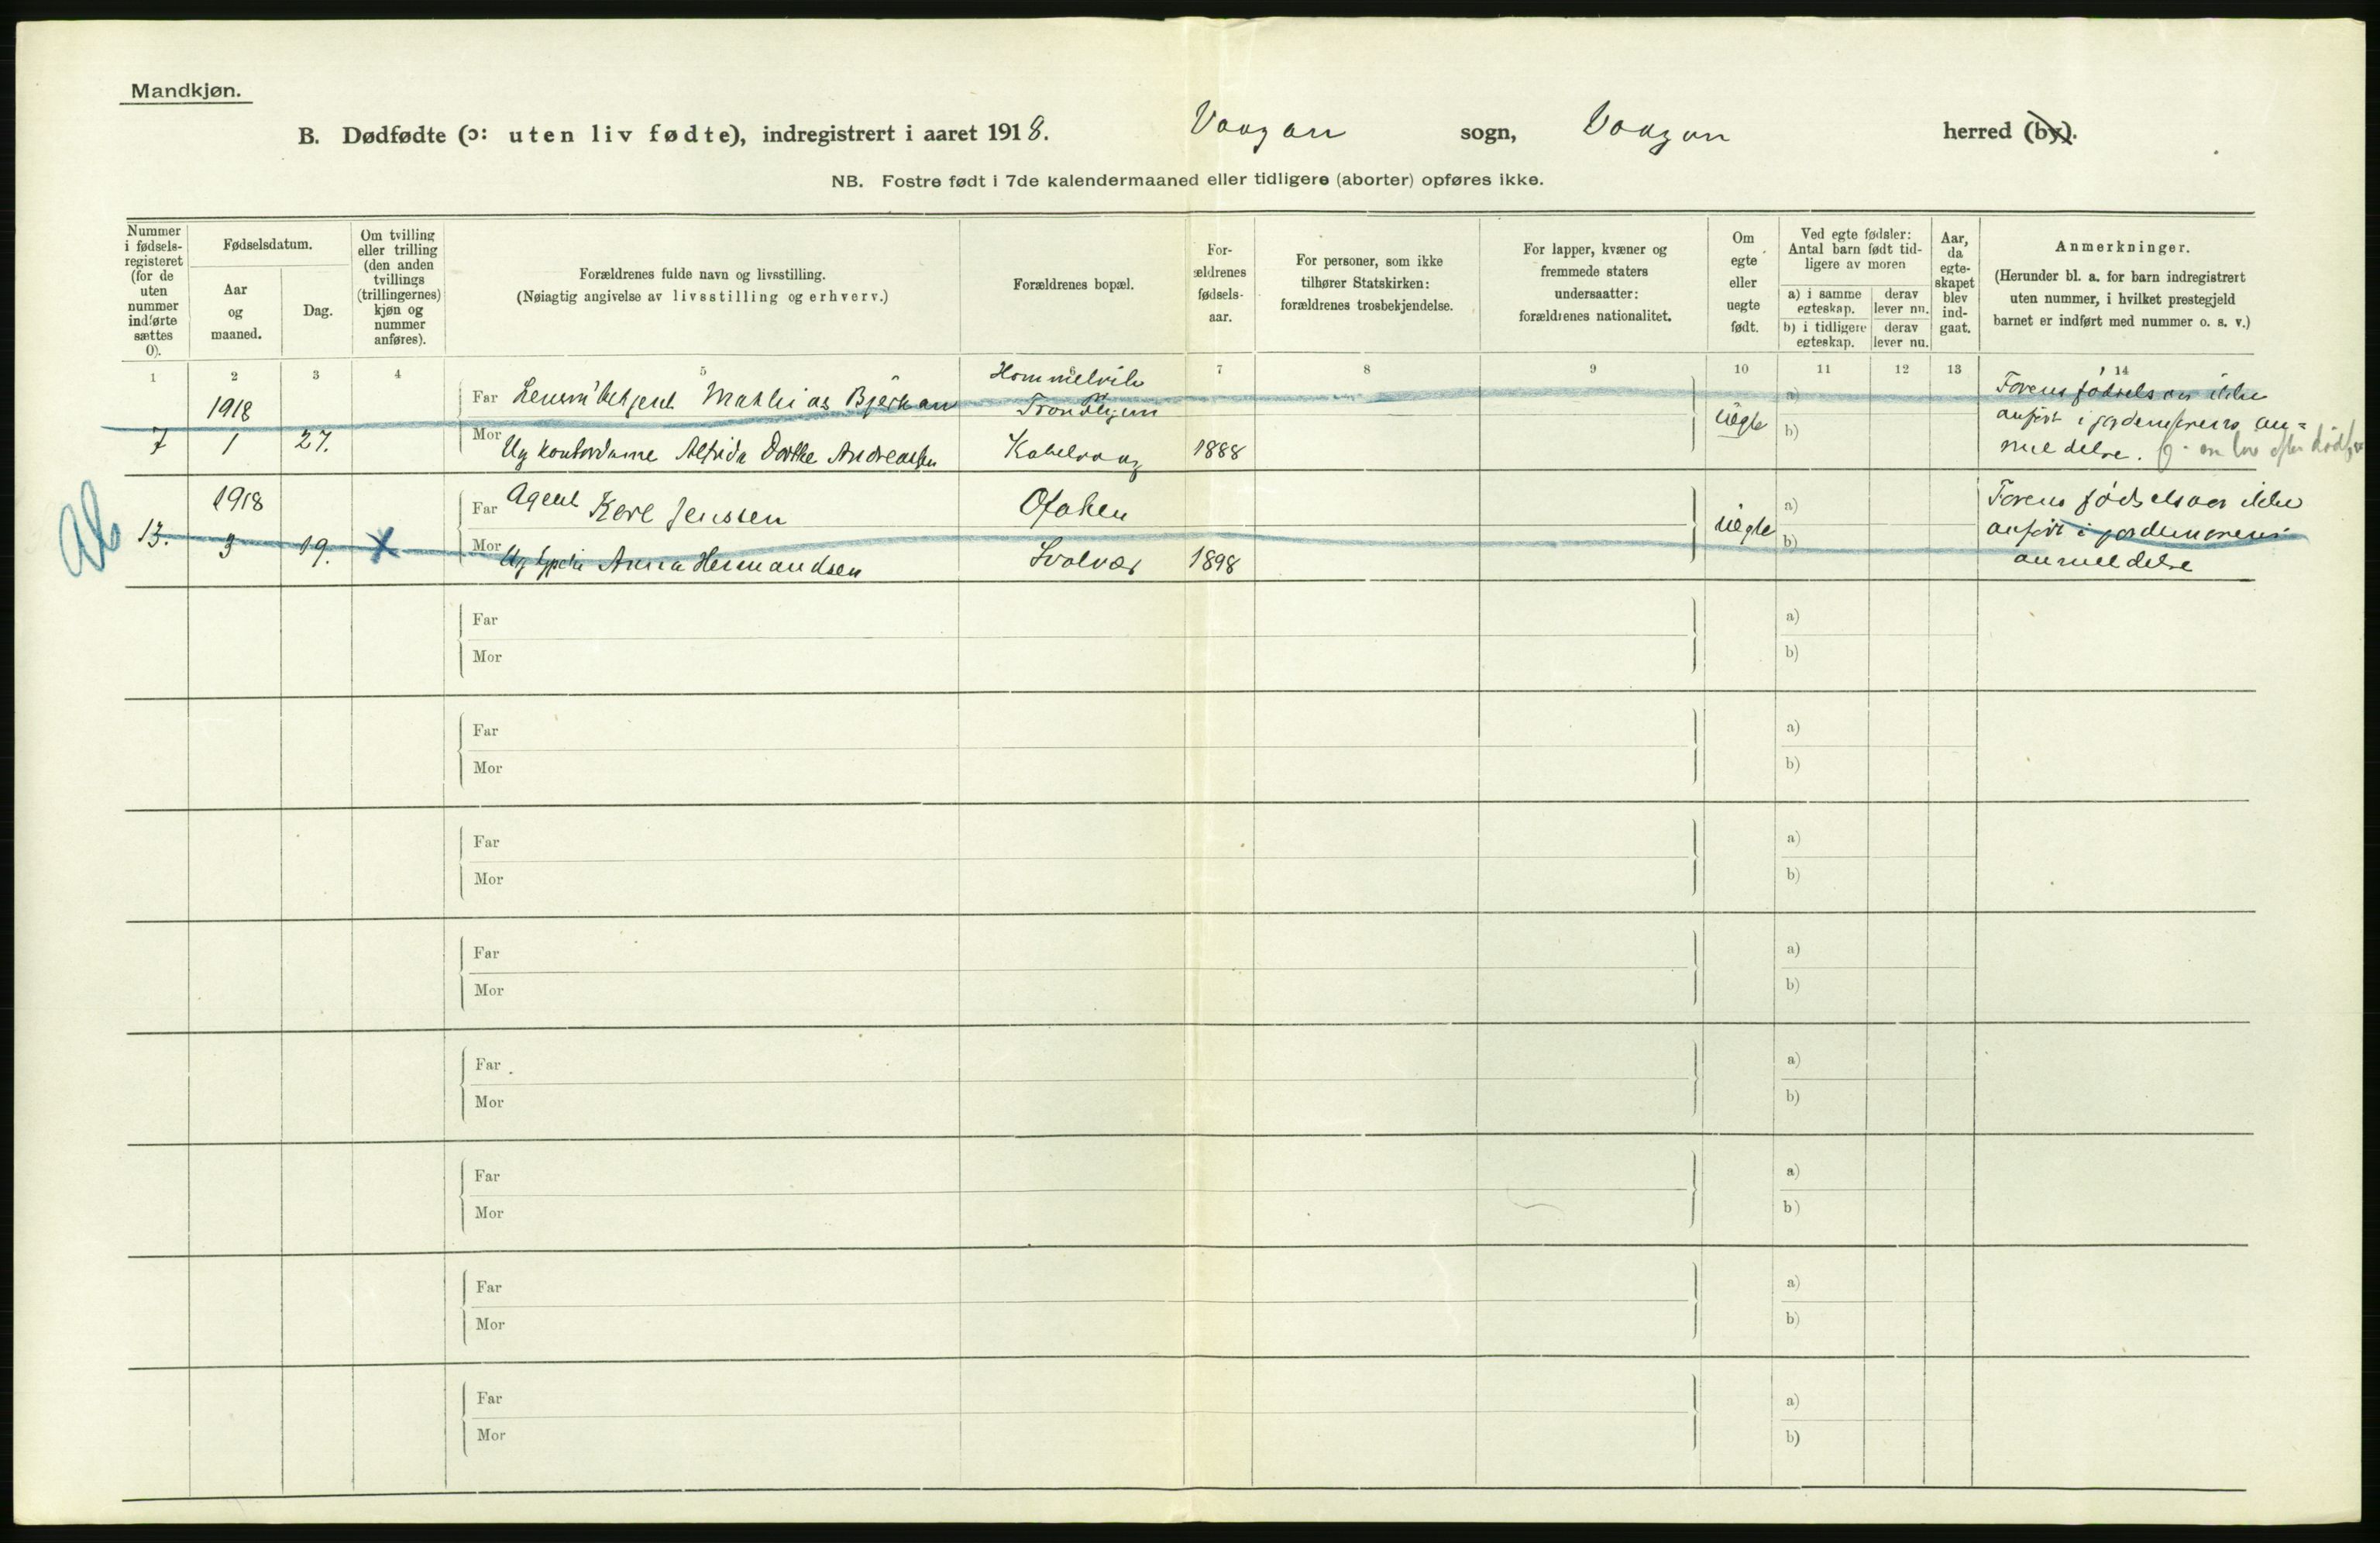 Mandkjøn.
B. Dødfødte (ɔ: uten liv fødte), indregistrert i aaret 1918. Vaagan sogn, Vaagan herred (by).
NB. Fostre født i 7de kalendermaaned eller tidligere (aborter) opføres ikke.
Nummer i fødsels-registeret (for de uten nummer indførte sættes 0).
Fødselsdatum.
Aar og maaned.
Dag.
Om tvilling eller trilling (den anden tvillings (trillingernes) kjøn og nummer anføres).
Forældrenes fulde navn og livsstilling.
(Nøiagtig angivelse av livsstilling og erhverv.)
Forældrenes bopæl.
For-ældrenes fødsels-aar.
For personer, som ikke tilhører Statskirken: forældrenes trosbekjendelse.
For lapper, kvæner og fremmede staters undersaatter: forældrenes nationalitet.
Om egte eller uegte født.
Ved egte fødsler: Antal barn født tid-ligere av moren
a) i samme egteskap.
derav lever nu.
b) i tidligere egteskap.
derav lever nu.
Aar, da egte-skapet blev ind-gaat.
Anmerkninger.
(Herunder bl. a. for barn indregistrert uten nummer, i hvilket prestegjeld barnet er indført med nummer o. s. v.)
1 2 3 4 5 6 7 8 9 10 11 12 13 14
1918
7 1 27.
Far Mathias Bjerkan
Hommelvik
Trondhjem
Mor Ug kontordame Alfrida Dorthe Andreassen Kabelvaag 1888
uegte
a)
b)
Farens fødselsaar ikke
anført i jordemorens an=
meldelse.
1918
13. 3 19. X
Far Agent Karl Jenssen Ofoten
Mor Ug Anna Hermandsen Svolvær 1898
uegte
a)
b)
Farens fødselsaar ikke
anført i jordemorens
anmeldelse
Far
Mor
a)
b)
Far
Mor
a)
b)
Far
Mor
a)
b)
Far
Mor
a)
b)
Far
Mor
a)
b)
Far
Mor
a)
b)
Far
Mor
a)
b)
Far
Mor
a)
b)